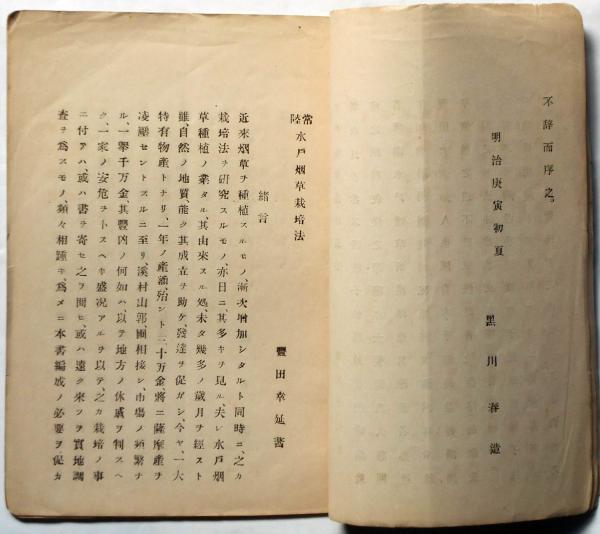 不辞而序之。
明治庚寅初夏
黒川春造
常陸水戸烟草栽培法
豐田幸延著
緒言
近來烟草ヲ種植スルモノ、漸次増加シタルト同時ニ、之カ
栽培法ヲ研究スルモノ、亦日ニ其多キヲ見ル、夫レ水戸烟
草種植ノ業タル、其由來スル処、未タ幾多ノ歳月ヲ經スト
雖、自然ノ地質、能ク其成立ヲ助ケ、發達ヲ促ガシ、今ヤ、一大
特有物産トナリ、一年ノ産額、殆ント二十万金、將ニ薩摩産ヲ
凌壓セントスルニ至リ、溪村山郭、圃相接シ、市塲ノ頻繁ナ
ル、一擧千万金、其豐凶ノ何如ハ、以テ地方ノ休戚ヲ判スヘ
ク、一家ノ安危ヲトスヘキ盛况アルヲ以テ、之カ栽培ノ事
ニ付テハ、或ハ書ヲ寄セ之ヲ問ヒ、或ハ遠ク來ツテ實地調
査ヲ爲スモノ、頻々相踵キ、爲メニ本書編成ノ必要ヲ促カ